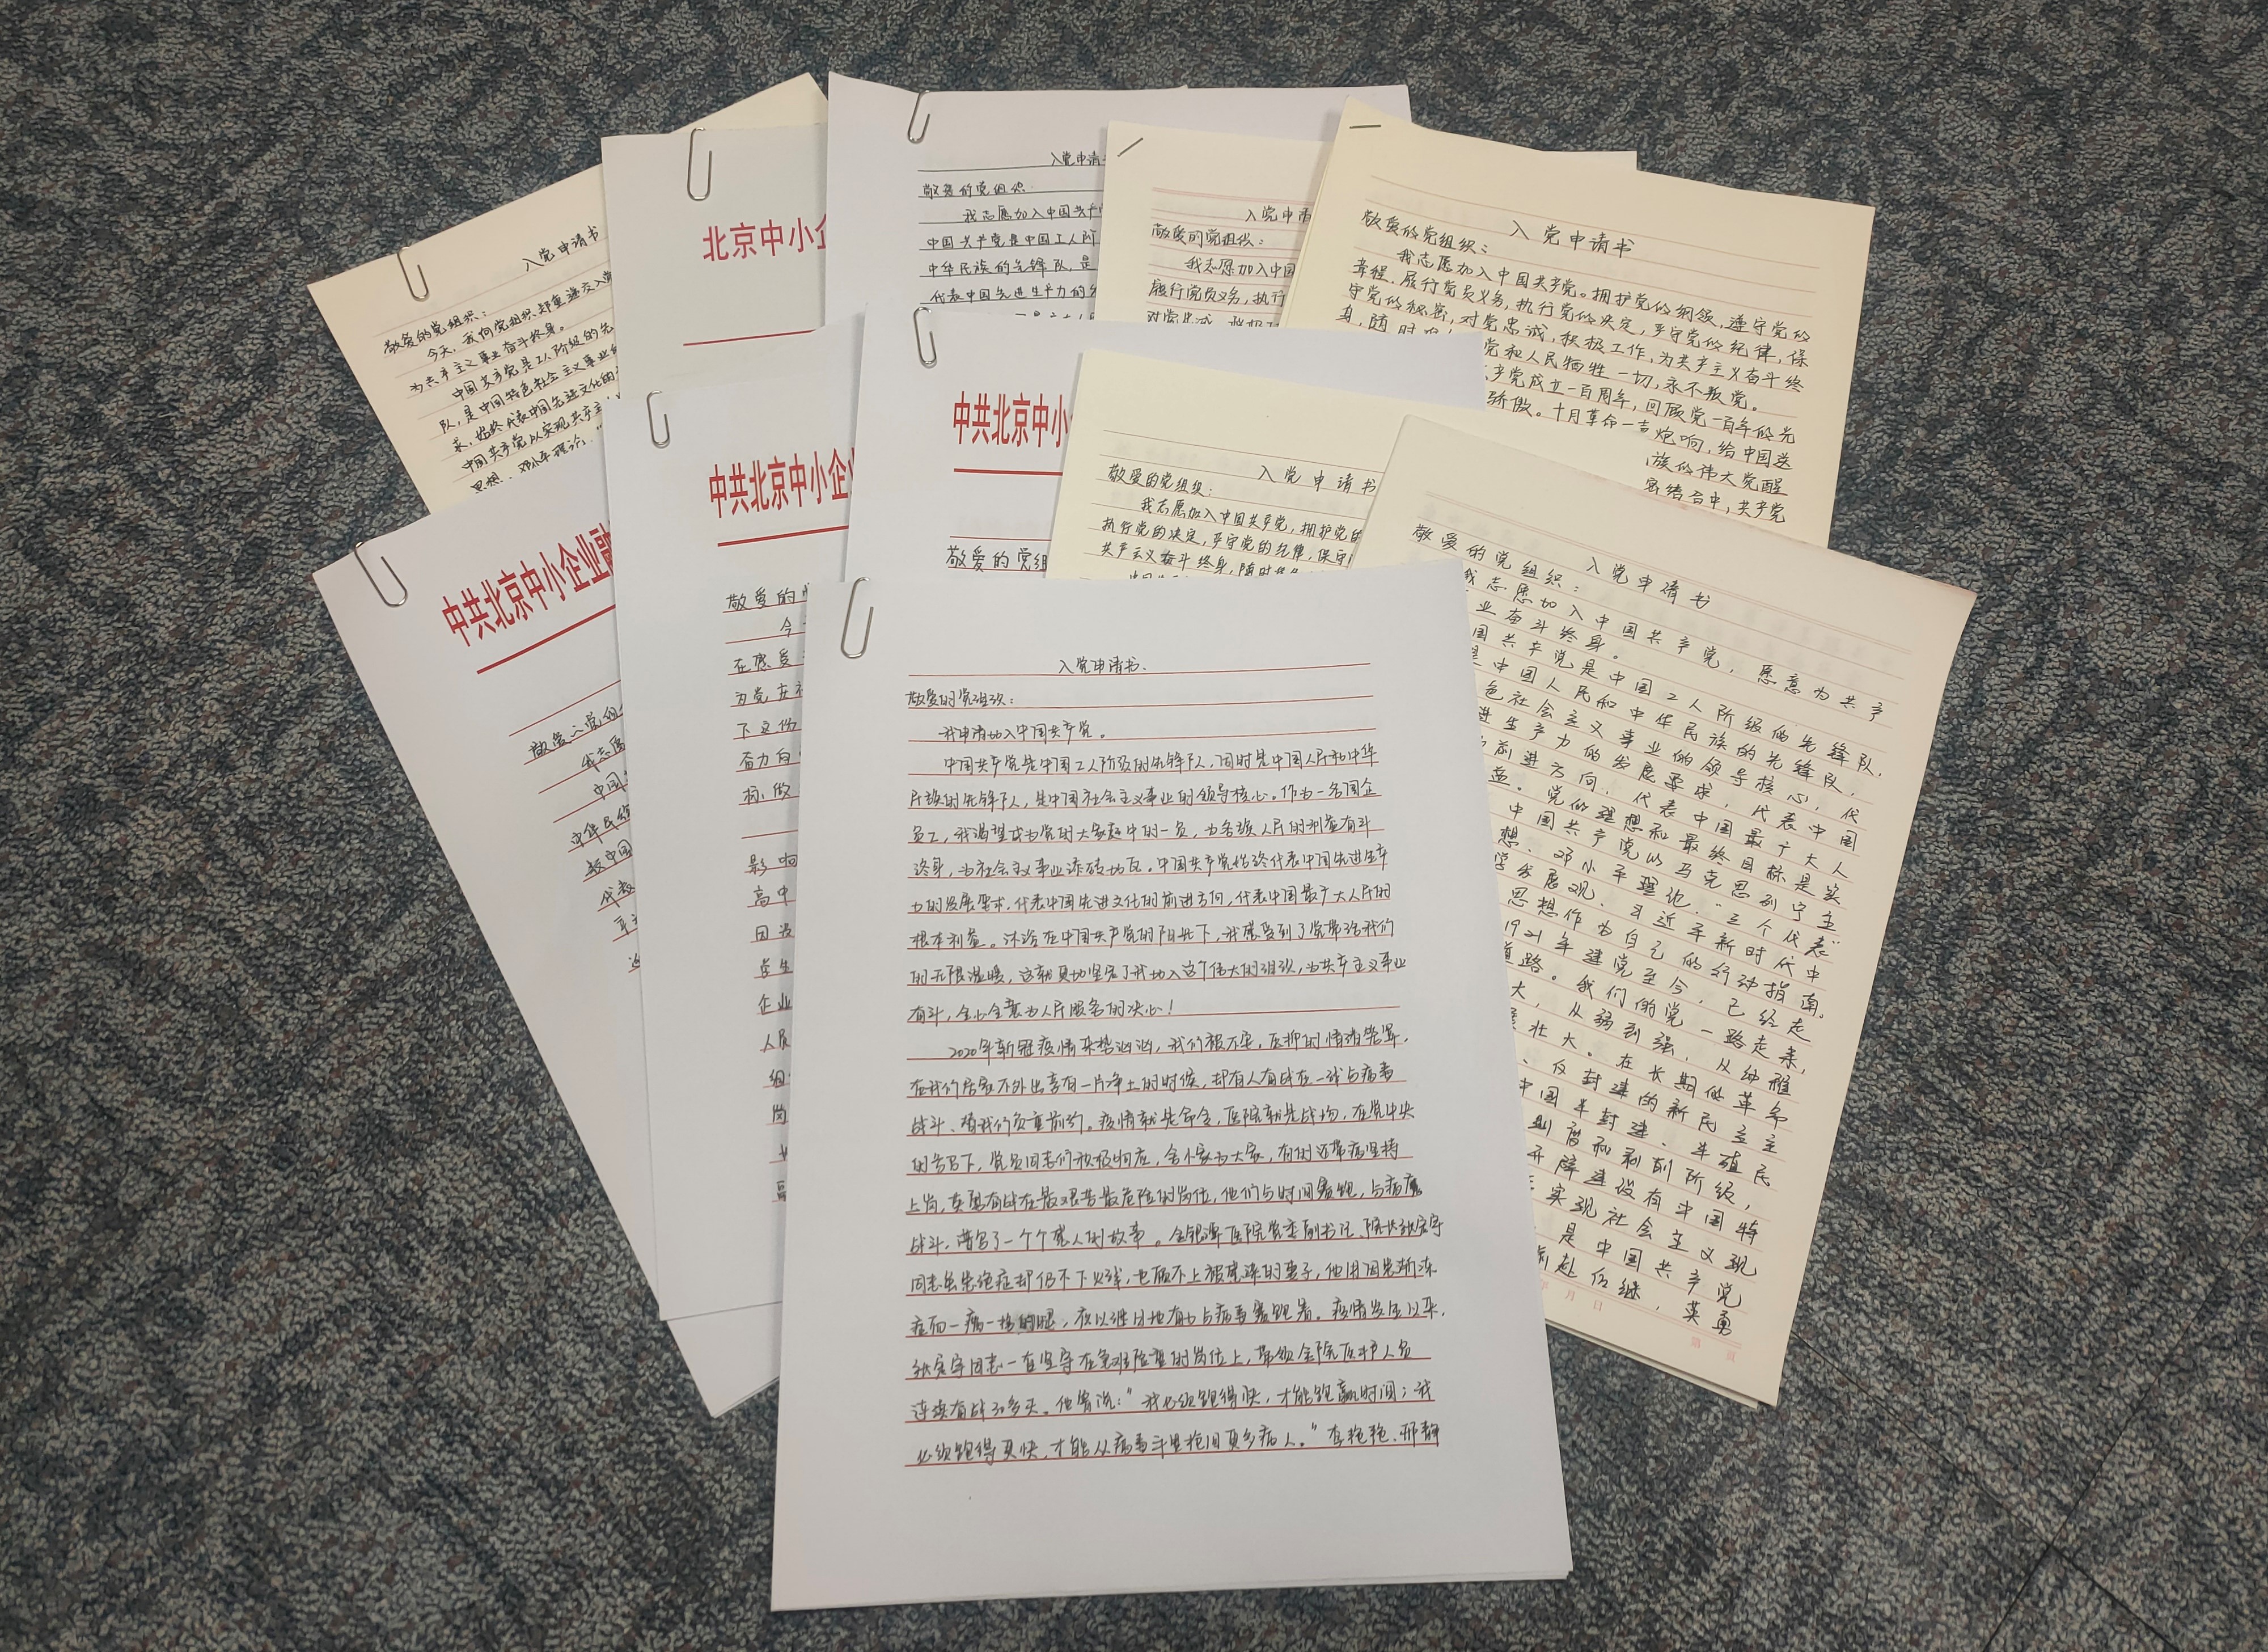 入党申请书
敬爱的党组织：
今天，我向党组织郑重递交入党
为共产主义事业奋斗终身。
中国共产党是工人阶级的先
队，是中国特色社会主义事业的
求，始终代表中国先进文化的
中国共产党以实现共产主
思想、邓小平理论、
北京中小企
入党申请
敬爱的党组织
我志愿加入中国共产
中国共产党是中国工人阶
中华民族的先锋队，是
代表中国先进生产力的
入党申请
敬爱的党组织：
我志愿加入中国
履行党员义务，执行
对党忠诚，积极
入党申请书
敬爱的党组织：
我志愿加入中国共产党。拥护党的纲领，遵守党的
章程，履行党员义务，执行党的决定，严守党的纪律，保
守党的秘密，对党忠诚，积极工作，为共产主义奋斗终
身，随时准 党和人民牺牲一切，永不叛党。
产党成立一百周年，回顾党一百年的光
骄傲。十月革命一声炮响，给中国送
族的伟大觉醒
密结合中，共产党
中共北京中小企业融
敬爱的党组
我志愿
中国
中华民
中国
代表
中共北京中小企业
敬爱的
今
在感受
为党在
下这份
奋力向
标，做
影响
高中
因为
党生
企业
人民
组
岗
中共北京中小
敬爱的党组
入党申请书
敬爱的党组织：
我志愿加入中国共产党，拥护党的
执行党的决定，严守党的纪律，保守
共产主义奋斗终身，随时准备
入党申请书
敬爱的党组织：
我志愿加入中国共产党，愿意为共产
业奋斗终身。
国共产党是中国工人阶级的先锋队，
是中国人民和中华民族的先锋队，
色社会主义事业的领导核心，代
进生产力的发展要求，代表中国
前进方向，代表中国最广大人
益。党的理想和最终目标是实
中国共产党以马克思列宁主
想、邓小平理论、“三个代表”
学发展观、习近平新时代中
思想作为自己的行动指南。
1921年建党至今，已经走
道路。我们的党一路走来，
大，从弱到强，从幼稚
壮大。在长期的革命
反封建的新民主主
中国半封建、半殖民
制度和剥削阶级，
开辟建设有中国特
实现社会主义现
是中国共产党
前赴后继，英勇
年 月 日
第 页
入党申请书.
敬爱的党组织：
我申请加入中国共产党。
中国共产党是中国工人阶级的先锋队，同时是中国人民和中华
民族的先锋队，是中国社会主义事业的领导核心。作为一名国企
员工，我渴望成为党的大家庭中的一员，为各族人民的利益奋斗
终身，为社会主义事业添砖加瓦。中国共产党始终代表中国先进生产
力的发展要求，代表中国先进文化的前进方向，代表中国最广大人民的
根本利益。沐浴在中国共产党的阳光下，我感受到了党带给我们
的无限温暖，这就更加坚定了我加入这个伟大的组织，为共产主义事业
奋斗，全心全意为人民服务的决心！
2020年新冠疫情来势汹汹，我们被不安、压抑的情绪笼罩，
在我们居家不外出享有一片净土的时候，却有人奋战在一线与病毒
战斗、替我们负重前行。疫情就是命令，医院就是战场，在党中央
的号召下，党员同志们积极响应，舍小家为大家，有的还带病坚持
上岗，英勇奋战在最艰苦最危险的岗位，他们与时间赛跑，与病魔
战斗，谱写了一个个感人的故事。金银潭医院党委副书记、院长张定宇
同志虽患绝症却仍不下火线，也顾不上被感染的妻子，他用因患渐冻
症而一瘸一拐的腿，夜以继日地奋力与病毒赛跑着。疫情发生以来，
张定宇同志一直坚守在急难险重的岗位上，带领全院医护人员
连续奋战30多天。他曾说：“我必须跑得快，才能跑赢时间；我
必须跑得更快，才能从病毒手里抢回更多病人。”李艳艳、邢静